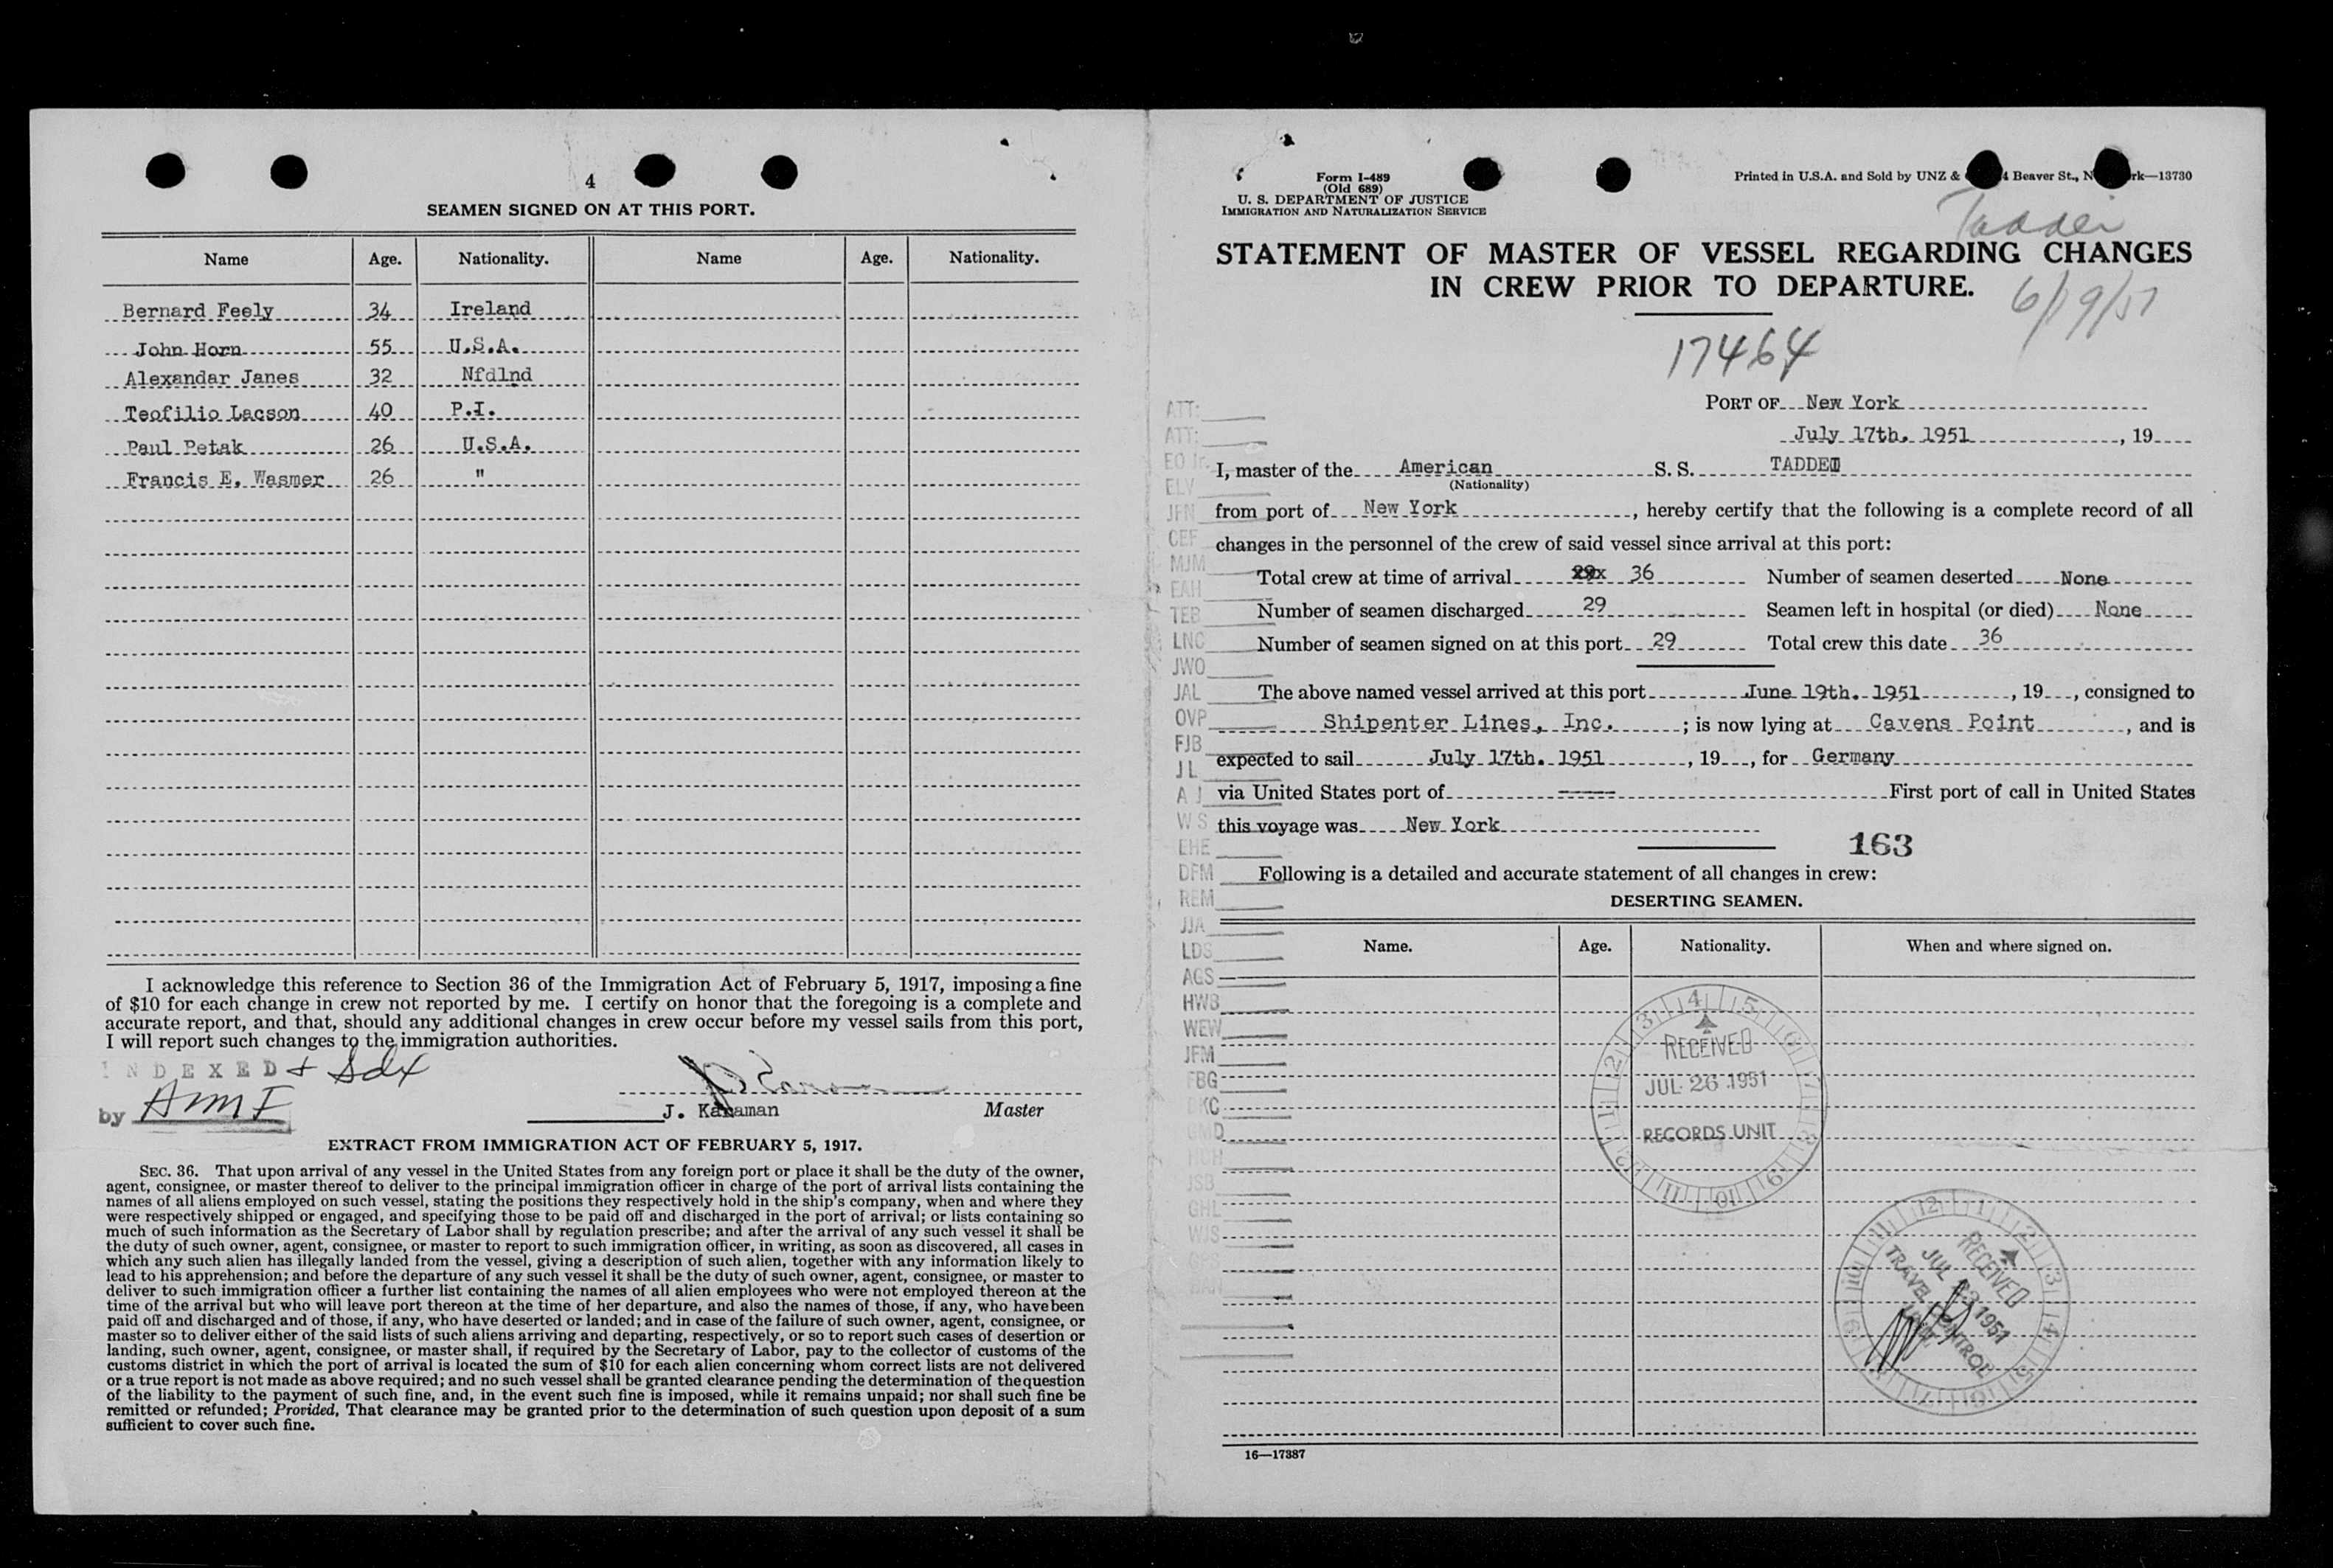 4
SEAMEN SIGNED ON AT THIS PORT.
Name Age. Nationality. Name Age. Nationality.
Bernard Feely 34 Ireland
John Horn 55 U.S.A.
Alexandar Janes 32 Nfdlnd
Teofilio Lacson 40 P.I.
Paul Petak 26 U.S.A.
Francis E. Wasmer 26 "
I acknowledge this reference to Section 36 of the Immigration Act of February 5, 1917, imposing a fine
of $10 for each change in crew not reported by me. I certify on honor that the foregoing is a complete and
accurate report, and that, should any additional changes in crew occur before my vessel sails from this port,
I will report such changes to the immigration authorities.
INDEXED
by
J. Karaman Master
EXTRACT FROM IMMIGRATION ACT OF FEBRUARY 5, 1917.
SEC. 36. That upon arrival of any vessel in the United States from any foreign port or place it shall be the duty of the owner,
agent, consignee, or master thereof to deliver to the principal immigration officer in charge of the port of arrival lists containing the
names of all aliens employed on such vessel, stating the positions they respectively hold in the ship's company, when and where they
were respectively shipped or engaged, and specifying those to be paid off and discharged in the port of arrival; or lists containing so
much of such information as the Secretary of Labor shall by regulation prescribe; and after the arrival of any such vessel it shall be
the duty of such owner, agent, consignee, or master to report to such immigration officer, in writing, as soon as discovered, all cases in
which any such alien has illegally landed from the vessel, giving a description of such alien, together with any information likely to
lead to his apprehension; and before the departure of any such vessel it shall be the duty of such owner, agent, consignee, or master to
deliver to such immigration officer a further list containing the names of all alien employees who were not employed thereon at the
time of the arrival but who will leave port thereon at the time of her departure, and also the names of those, if any, who have been
paid off and discharged and of those, if any, who have deserted or landed; and in case of the failure of such owner, agent, consignee, or
master so to deliver either of the said lists of such aliens arriving and departing, respectively, or so to report such cases of desertion or
landing, such owner, agent, consignee, or master shall, if required by the Secretary of Labor, pay to the collector of customs of the
customs district in which the port of arrival is located the sum of $10 for each alien concerning whom correct lists are not delivered
or a true report is not made as above required; and no such vessel shall be granted clearance pending the determination of the question
of the liability to the payment of such fine, and, in the event such fine is imposed, while it remains unpaid; nor shall such fine be
remitted or refunded; Provided, That clearance may be granted prior to the determination of such question upon deposit of a sum
sufficient to cover such fine.
Form I-489
(Old 689)
U. S. DEPARTMENT OF JUSTICE
IMMIGRATION AND NATURALIZATION SERVICE
Printed in U.S.A. and Sold by UNZ & 4 Beaver St., N rk—13730
Taddei
STATEMENT OF MASTER OF VESSEL REGARDING CHANGES
IN CREW PRIOR TO DEPARTURE.
6/19/51
17464
PORT OF New York
July 17th. 1951, 19
I, master of the American S. S. TADDEI
(Nationality)
from port of New York, hereby certify that the following is a complete record of all
changes in the personnel of the crew of said vessel since arrival at this port:
Total crew at time of arrival 36 Number of seamen deserted None
Number of seamen discharged 29 Seamen left in hospital (or died) None
Number of seamen signed on at this port 29 Total crew this date 36
The above named vessel arrived at this port June 19th. 1951, 19, consigned to
Shipenter Lines, Inc.; is now lying at Cavens Point, and is
expected to sail July 17th. 1951, 19, for Germany
via United States port of ----- First port of call in United States
this voyage was New York
163
Following is a detailed and accurate statement of all changes in crew:
DESERTING SEAMEN.
Name. Age. Nationality. When and where signed on.
ATT:
ATT:
EO Jr.
ELV
JFN
CEF
MJM
EAH
TEB
LNC
JWO
JAL
OVP
FJB
JL
AJ
WS
EHE
DFM
REM
JJA
LDS
AGS
HWB
WEW
JFM
FBG
GMD
HCH
JSB
GHL
WJS
RECEIVED
JUL 26 1951
RECORDS UNIT
RECEIVED
JUL 23 1951
TRAVEL CONTROL
16—17387